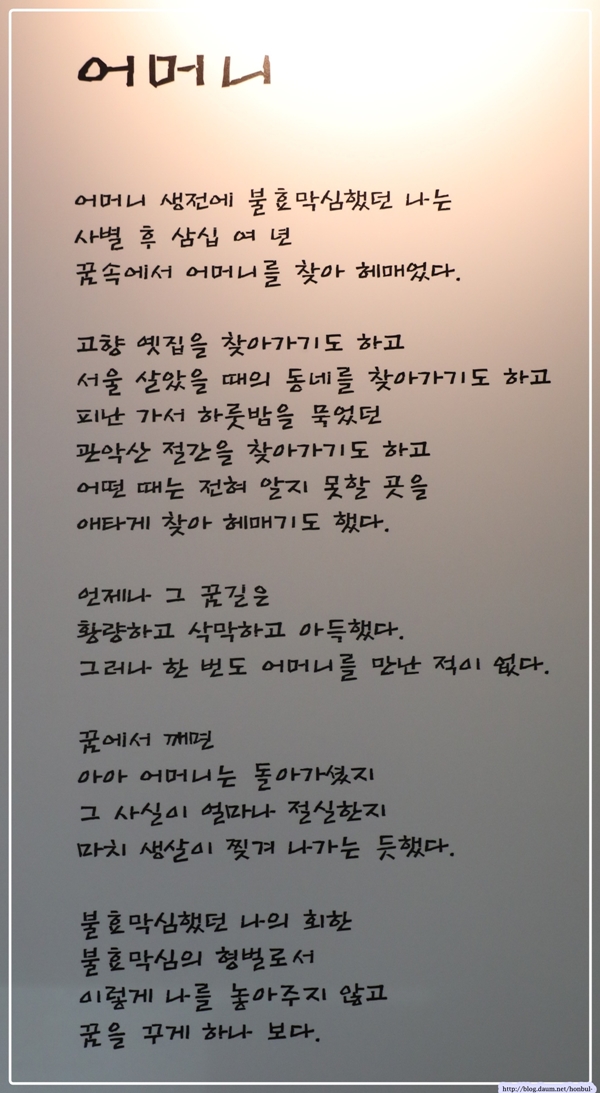 어머니
어머니 생전에 불효막심했던 나는
사별 후 삼십 여 년
꿈속에서 어머니를 찾아 헤매었다.
고향 옛집을 찾아가기도 하고
서울 살았을 때의 동네를 찾아가기도 하고
피난 가서 하룻밤을 묵었던
관악산 절간을 찾아가기도 하고
어떤 때는 전혀 알지 못할 곳을
애타게 찾아 헤매기도 했다.
언제나 그 꿈길은
황량하고 삭막하고 아득했다.
그러나 한 번도 어머니를 만난 적이 없다.
꿈에서 깨면
아아 어머니는 돌아가셨지
그 사실이 얼마나 절실한지
마치 생살이 찢겨 나가는 듯했다.
불효막심했던 나의 회한
불효막심의 형벌로서
이렇게 나를 놓아주지 않고
꿈을 꾸게 하나 보다.
http://blog.daum.net/honbul-